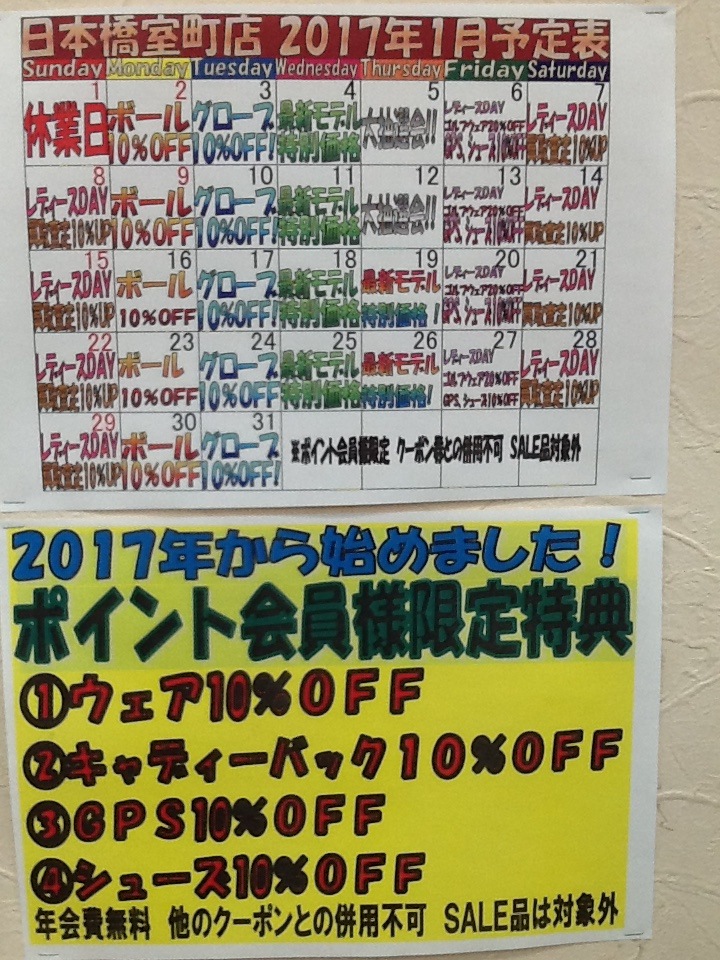 日本橋室町店 2017年1月予定表
Sunday Monday Tuesday Wednesday Thursday Friday Saturday
1 2 3 4 5 6 7
休業日 ボール グローブ 最新モデル 大抽選会!! レディースDAY レディースDAY
10%OFF 10%OFF! 特別価格 ゴルフウェア20%OFF 買取査定10%UP
GPS、シューズ10%OFF
8 9 10 11 12 13 14
レディースDAY ボール グローブ 最新モデル 大抽選会!! レディースDAY レディースDAY
買取査定10%UP 10%OFF 10%OFF! 特別価格 ゴルフウェア20%OFF 買取査定10%UP
GPS、シューズ10%OFF
15 16 17 18 19 20 21
レディースDAY ボール グローブ 最新モデル 最新モデル レディースDAY レディースDAY
買取査定10%UP 10%OFF 10%OFF! 特別価格 特別価格! ゴルフウェア20%OFF 買取査定10%UP
GPS、シューズ10%OFF
22 23 24 25 26 27 28
レディースDAY ボール グローブ 最新モデル 最新モデル レディースDAY レディースDAY
買取査定10%UP 10%OFF 10%OFF! 特別価格 特別価格! ゴルフウェア20%OFF 買取査定10%UP
GPS、シューズ10%OFF
29 30 31
レディースDAY ボール グローブ ※ポイント会員様限定 クーポン券との併用不可 SALE品対象外
買取査定10%UP 10%OFF 10%OFF!
2017年から始めました!
ポイント会員様限定特典
①ウェア10%OFF
②キャディーバック10%OFF
③GPS10%OFF
④シューズ10%OFF
年会費無料 他のクーポンとの併用不可 SALE品は対象外